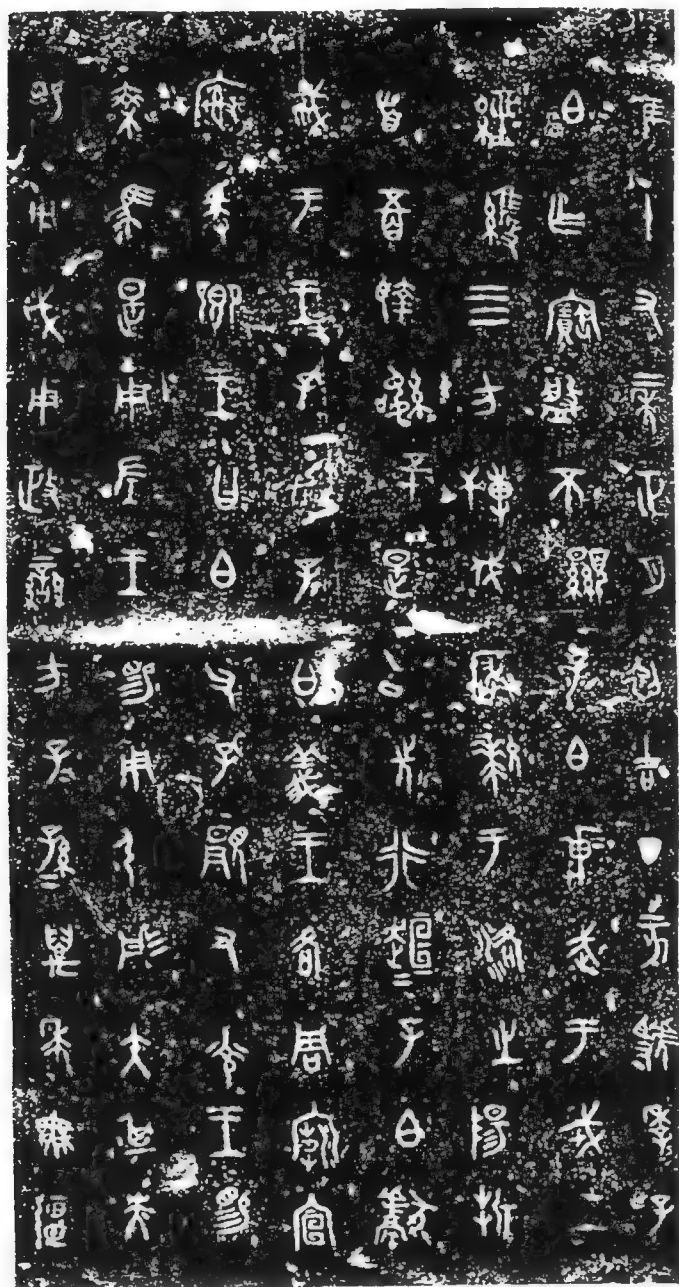 隹十又二年正月初吉丁亥虢季子
白乍寶盤不顯子白壯武于戎工
經維四方博伐玁狁于洛之陽折
首五百執訊五十是以先行桓桓子白獻
馘于王王孔加子白義王各周廟宣
榭爰鄉王曰白父孔顯又光王賜
乘馬是用左王賜用弓彤矢其央
賜用戉用政蠻方子子孫孫萬年無疆